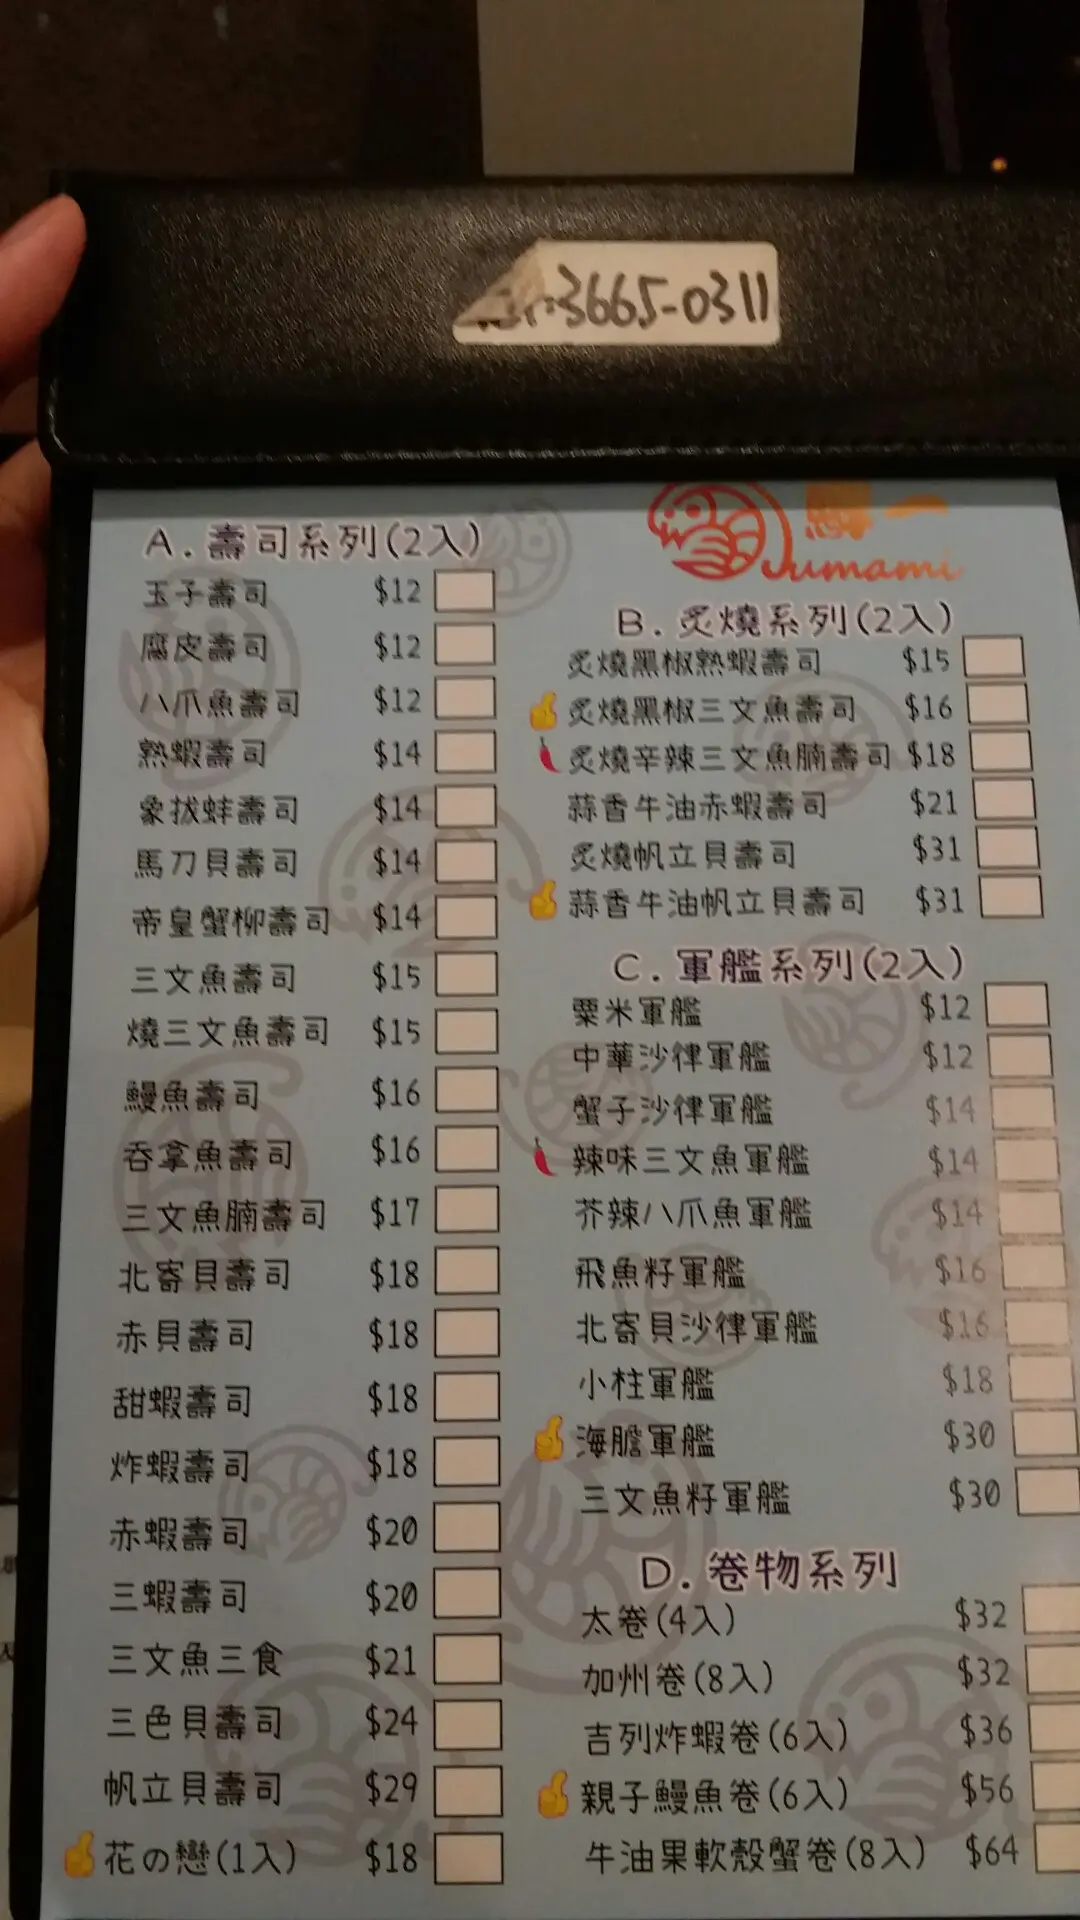 3665-0311
一
Jumami
A.壽司系列(2入)
玉子壽司 $12
腐皮壽司 $12
八爪魚壽司 $12
熟蝦壽司 $14
象拔蚌壽司 $14
馬刀貝壽司 $14
帝皇蟹柳壽司 $14
三文魚壽司 $15
燒三文魚壽司 $15
鰻魚壽司 $16
吞拿魚壽司 $16
三文魚腩壽司 $17
北寄貝壽司 $18
赤貝壽司 $18
甜蝦壽司 $18
炸蝦壽司 $18
赤蝦壽司 $20
三蝦壽司 $20
三文魚三食 $21
三色貝壽司 $24
帆立貝壽司 $29
花の戀(1入) $18
B.炙燒系列(2入)
炙燒黑椒熟蝦壽司 $15
炙燒黑椒三文魚壽司 $16
炙燒辛辣三文魚腩壽司 $18
蒜香牛油赤蝦壽司 $21
炙燒帆立貝壽司 $31
蒜香牛油帆立貝壽司 $31
C.軍艦系列(2入)
粟米軍艦 $12
中華沙律軍艦 $12
蟹子沙律軍艦 $14
辣味三文魚軍艦 $14
芥辣八爪魚軍艦 $14
飛魚籽軍艦 $16
北寄貝沙律軍艦 $16
小柱軍艦 $18
海膽軍艦 $30
三文魚籽軍艦 $30
D.卷物系列
太卷(4入) $32
加州卷(8入) $32
吉列炸蝦卷(6入) $36
親子鰻魚卷(6入) $56
牛油果軟殼蟹卷(8入) $64